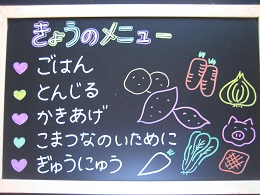 きょうのメニュー
ごはん
とんじる
かきあげ
こまつなのいために
ぎゅうにゅう